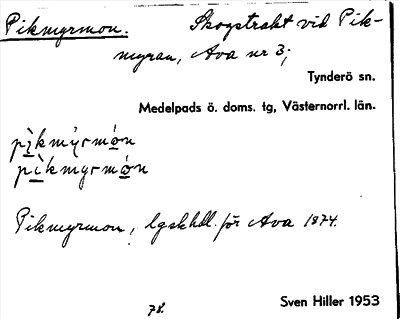 Pikmyrmon. Skogstrakt vid Pik-
myran, Ava nr 3;
Tynderö sn.
Medelpads ö. doms. tg, Västernorrl. län.
pìkmyrmón
pìkmyrmón
Pikmyrmon, lgskhdl. för Ava 1874.
78.
Sven Hiller 1953